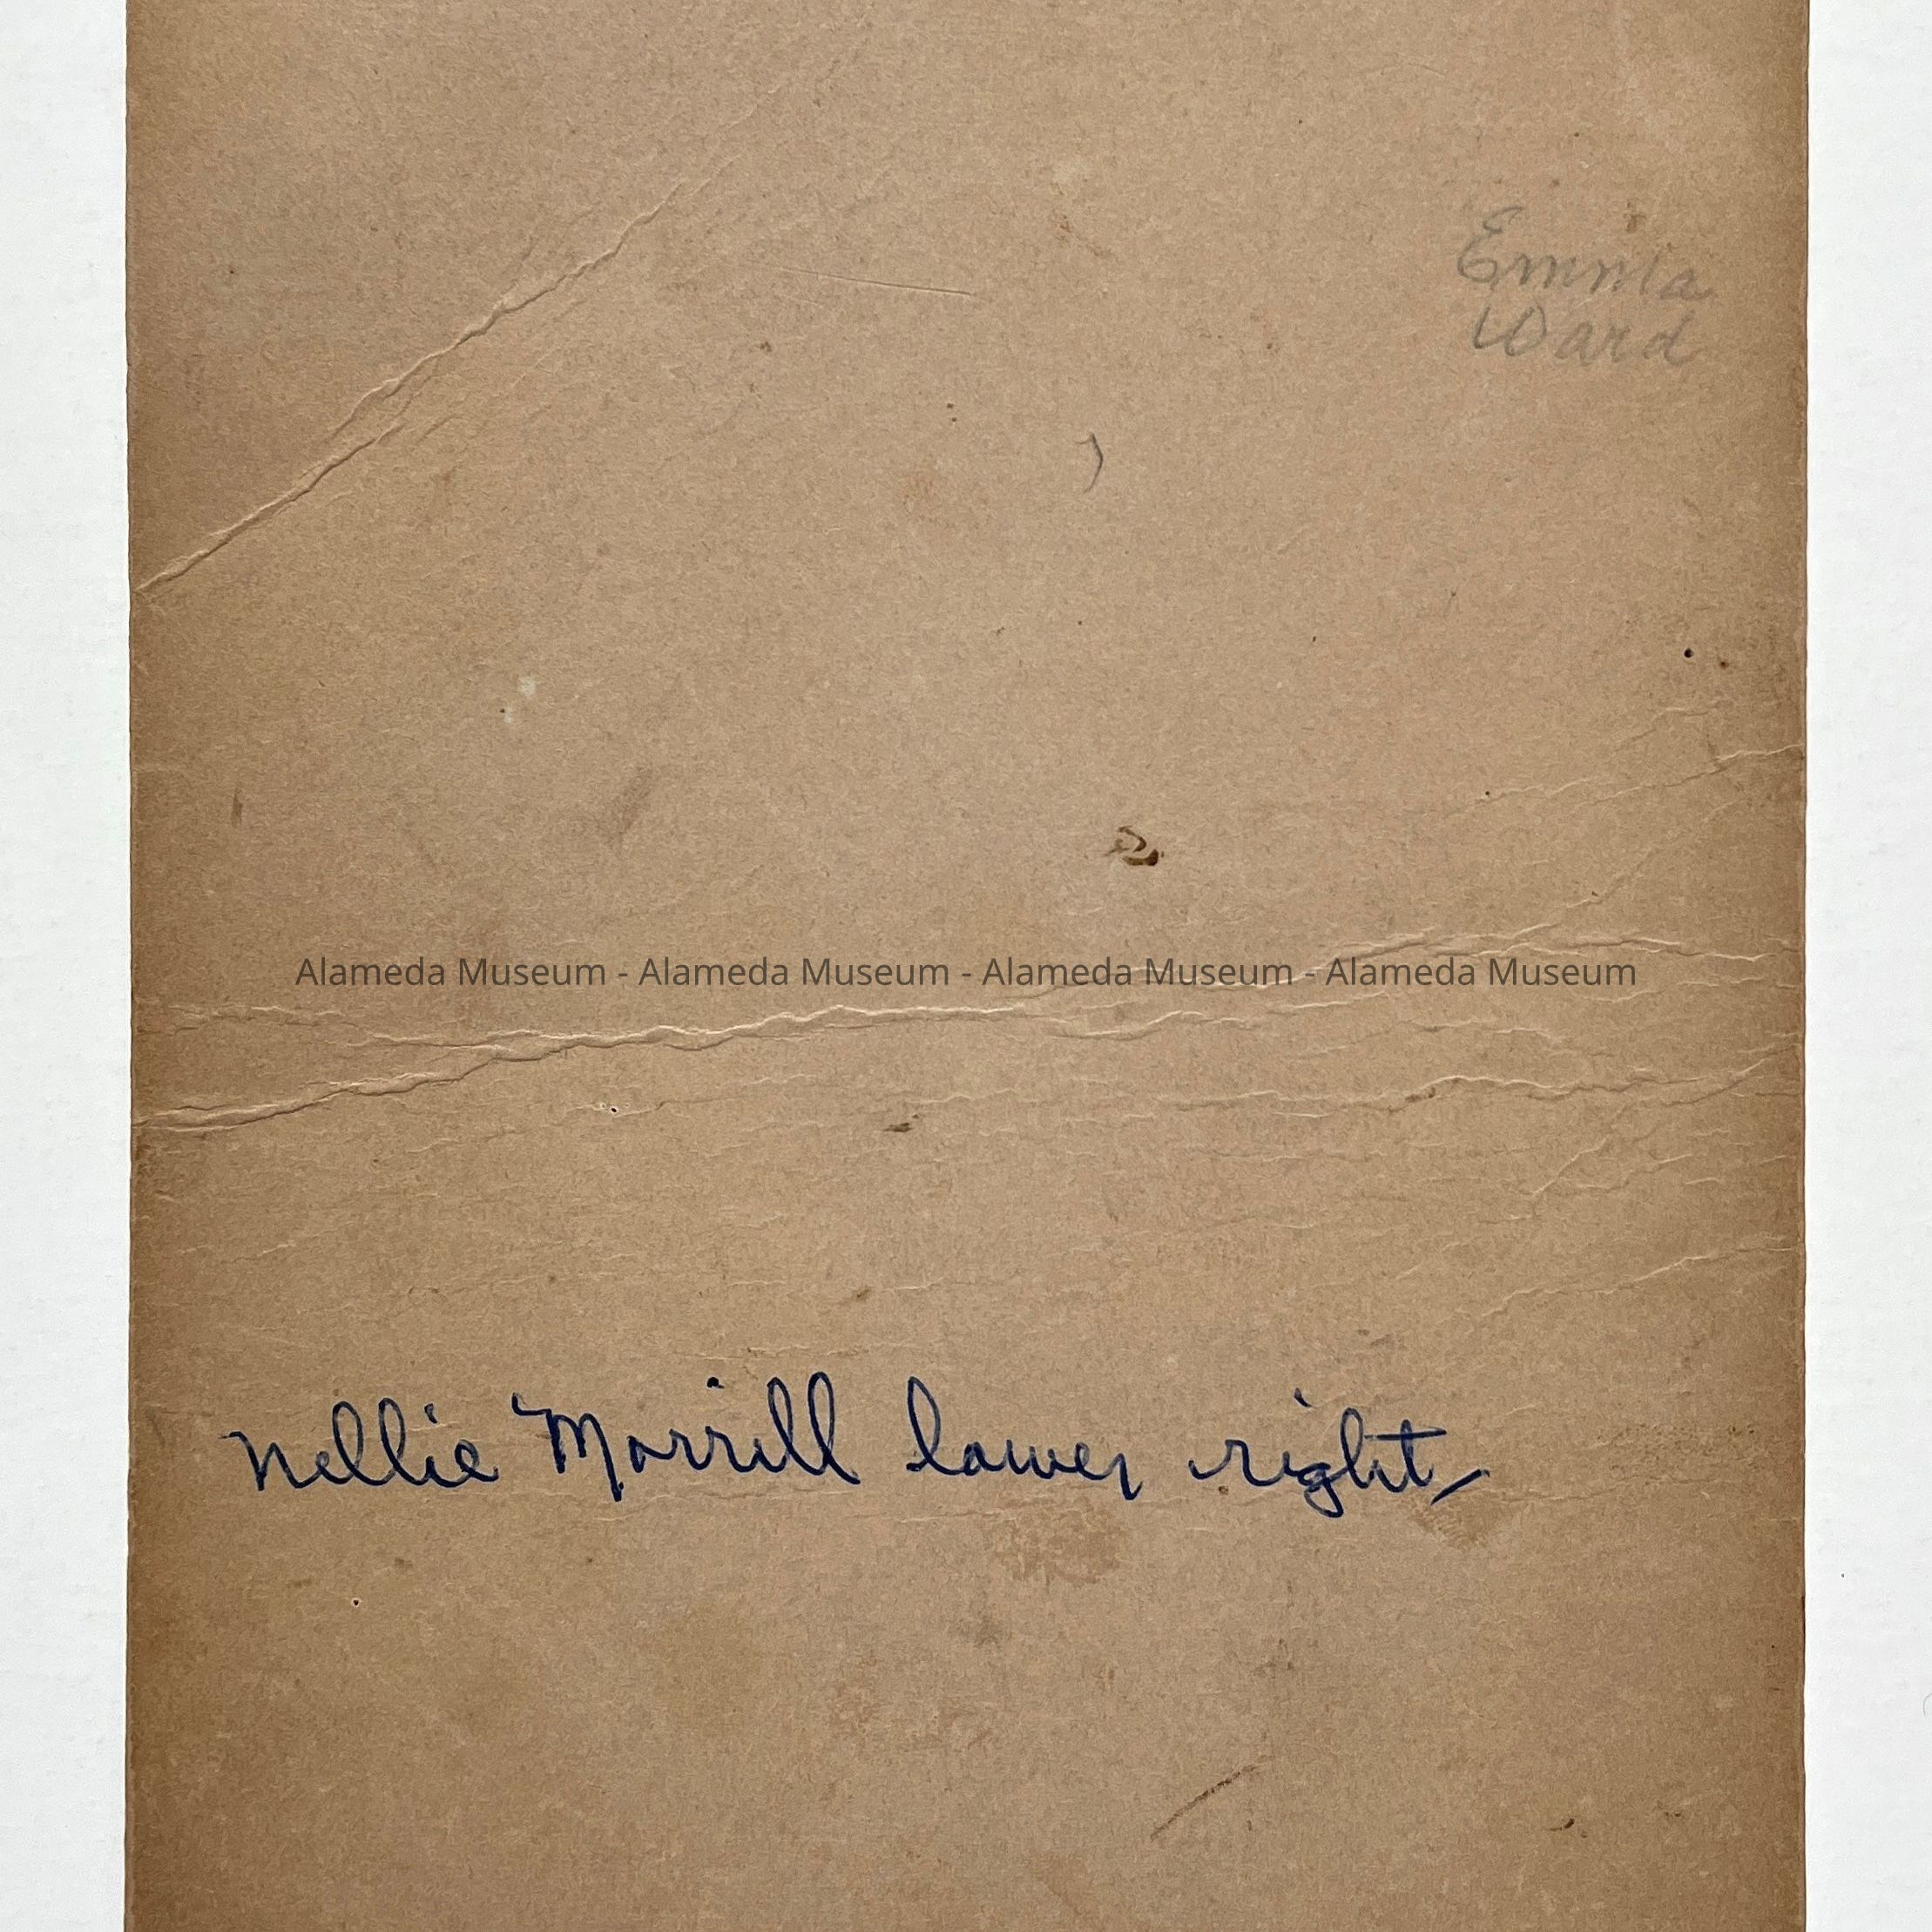 Emma
Ward
Alameda Museum - Alameda Museum - Alameda Museum - Alameda Museum
Nellie Morrill lower right